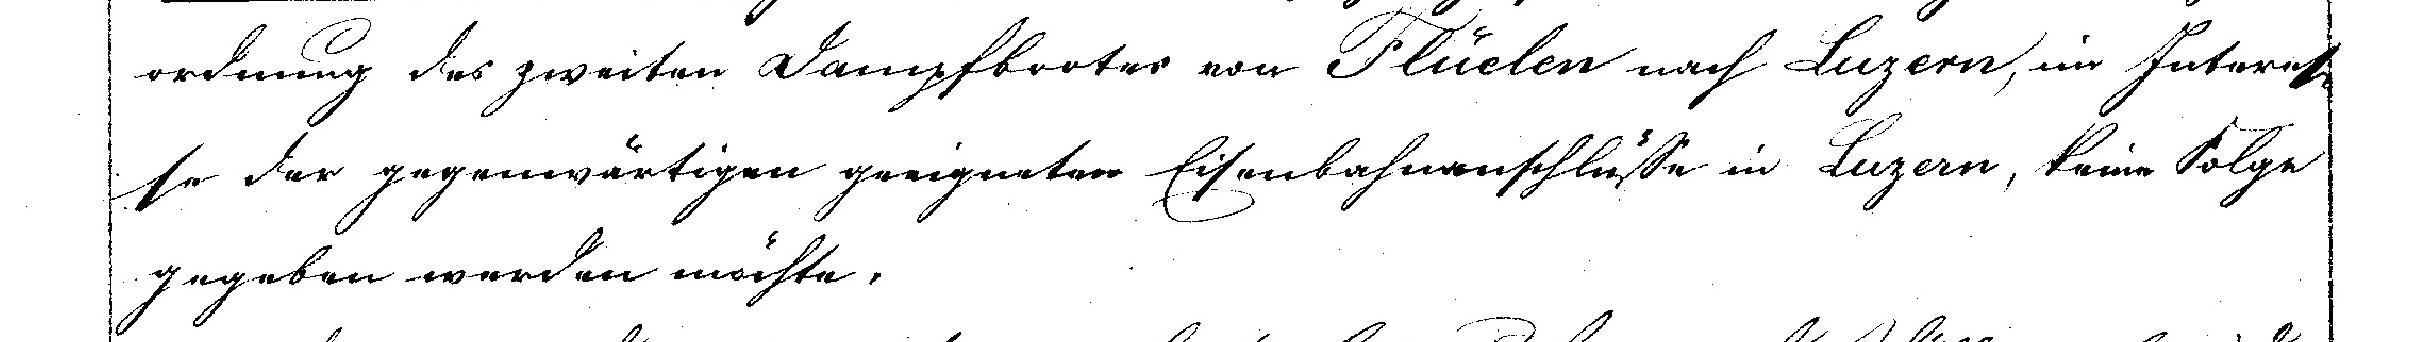 ordnung des zweiten Dampfbootes von Flüelen nach Luzern, im Interes-
se der gegenwärtigen geeigneten Eisenbahnanschlüsse in Luzern, keine Folge
gegeben werden möchte.